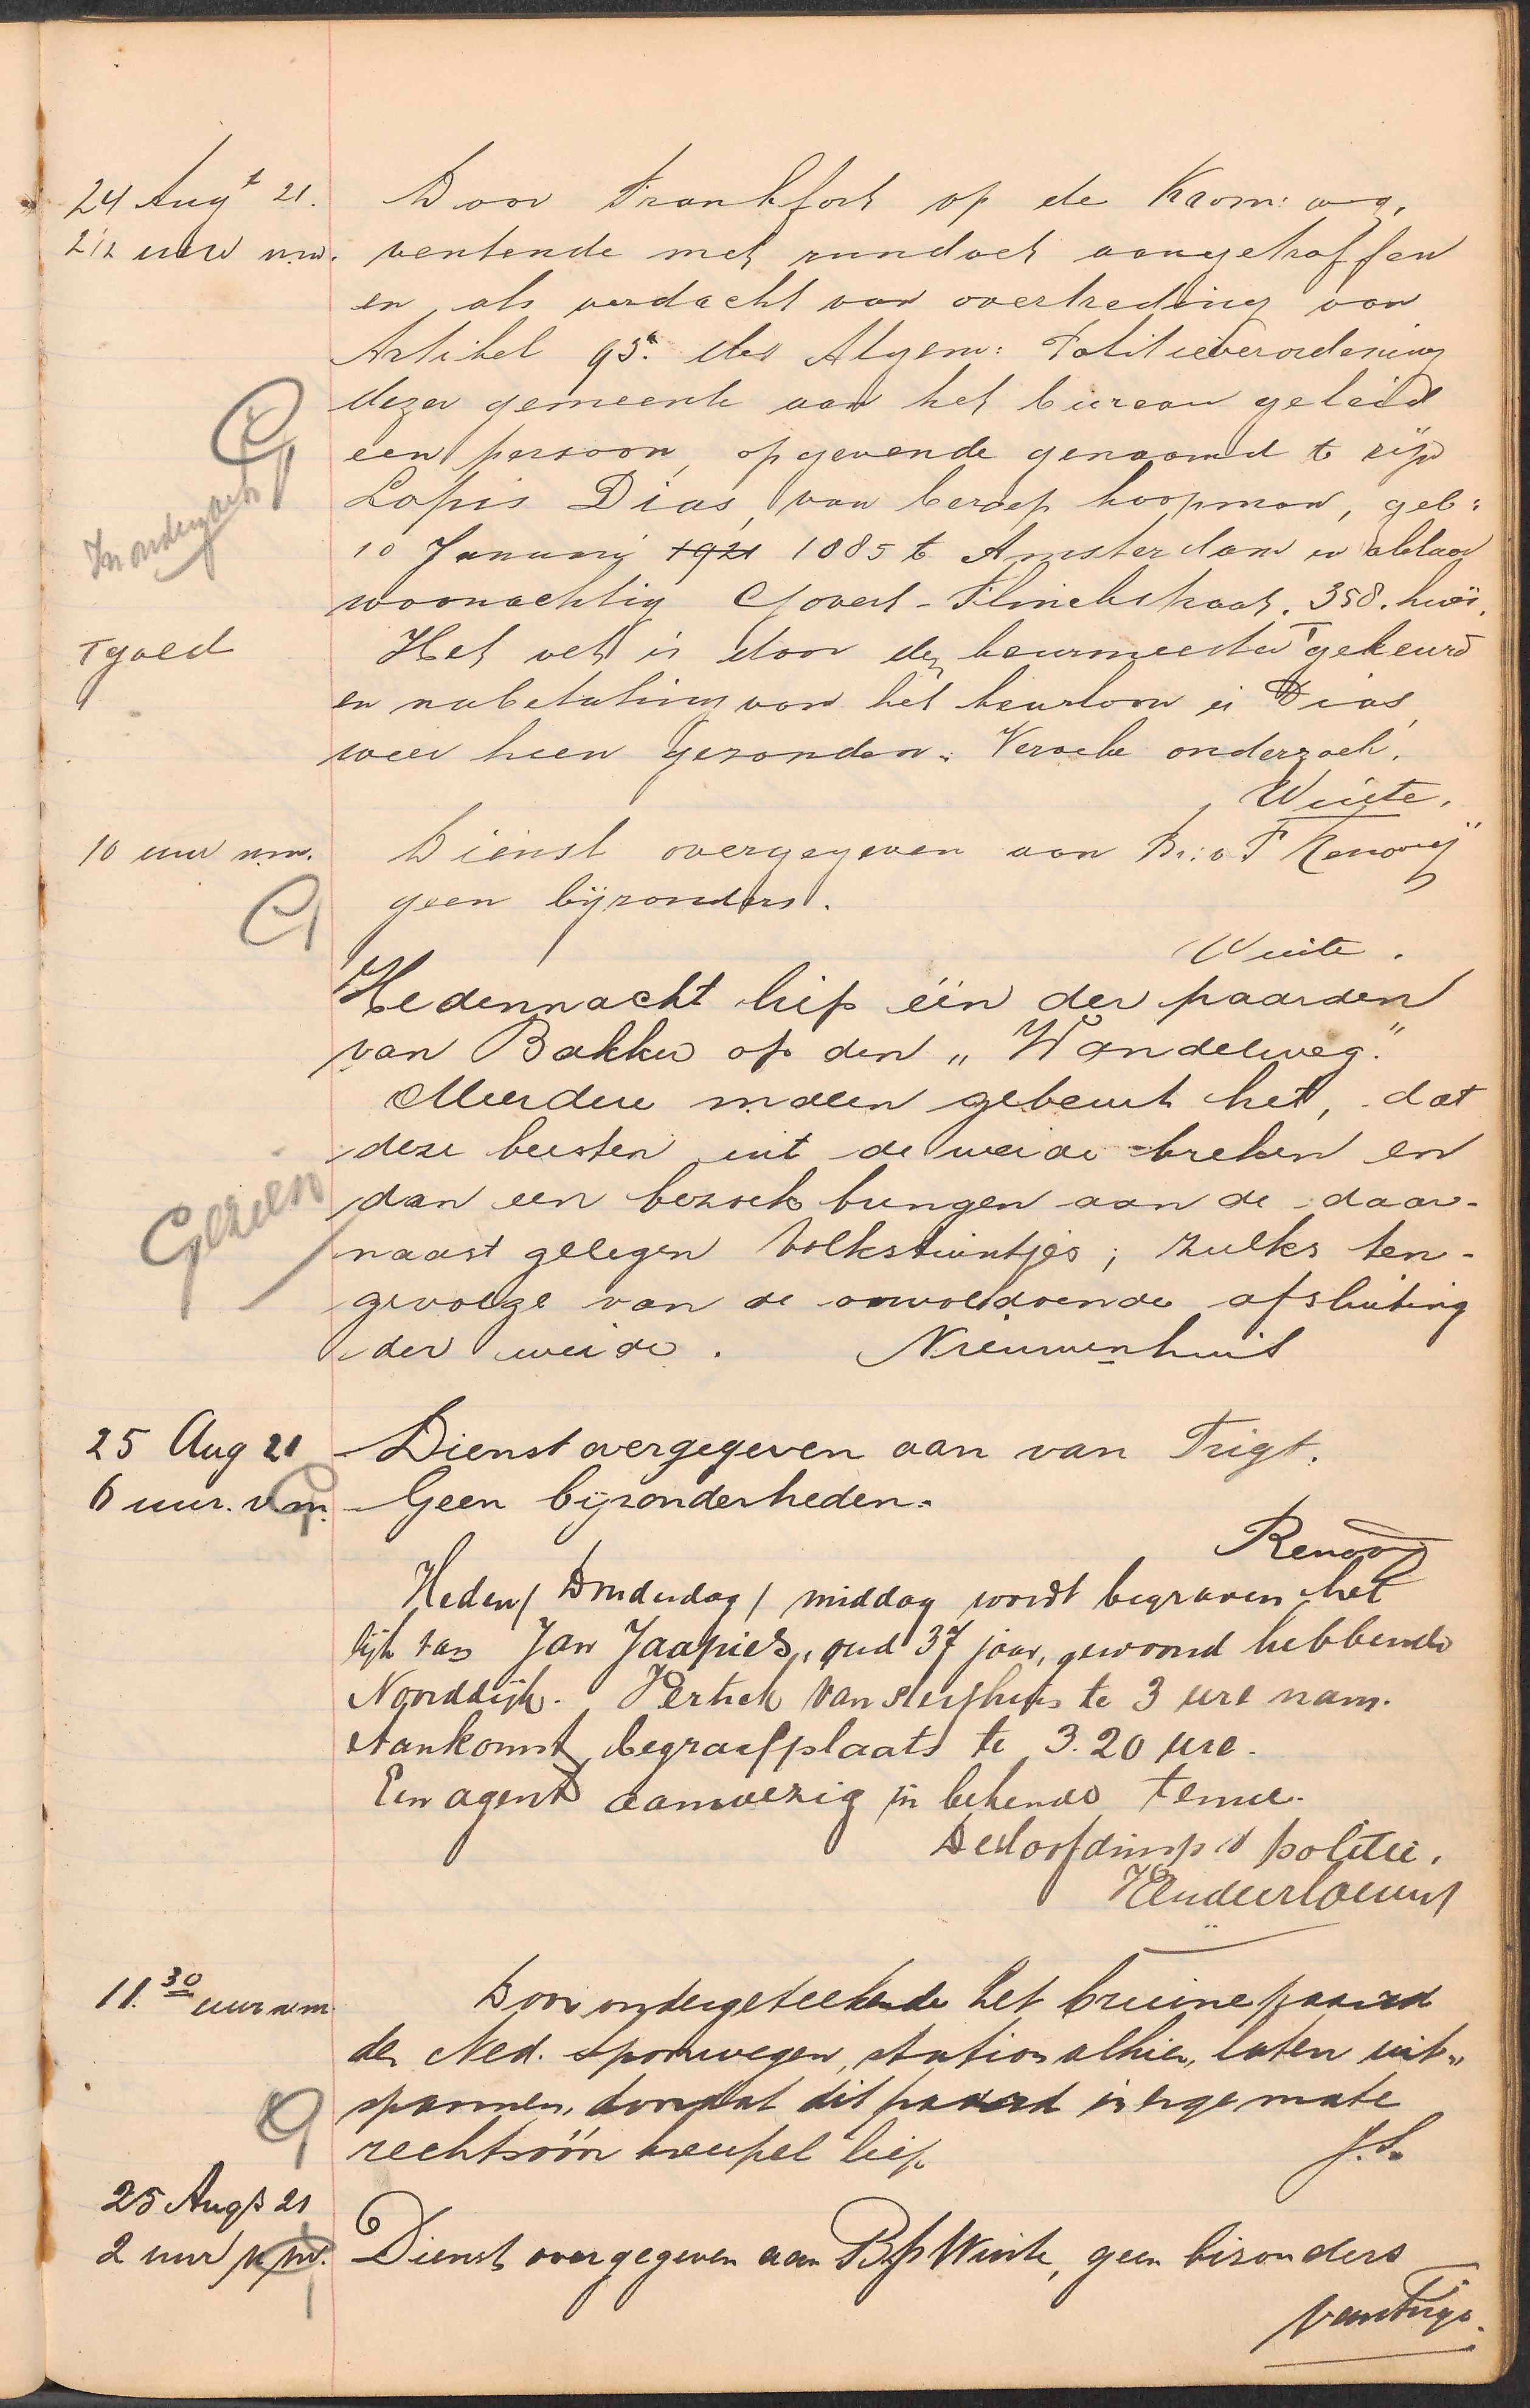 24 Augt 21. Door Frankfort op de Krom: weg,
2 1/2 uur n.m. ventende met rundvet aangetroffen
en als verdacht van overtreding van
Artikel 95a der Algem: Politieverordening
dezer gemeente aan het bureau geleid
een persoon, opgevende genaamd te zijn
In onderzoek G
Lopis Dias, van beroep koopman, geb:
10 Januarij 1921 1885 te Amsterdam en aldaar
woonachtig Govert-Flinckstraat. 358. huis.
T goed Het vet is door den keurmeester T gekeurd
en na betaling van het keurloon is Dias
weer heen gezonden. Verzoeke onderzoek.
Wuite.
10 uur n.m. Dienst overgegeven aan Br: v P Renooij
G geen bijzonders.
Wuite.
Hedennacht liep één der paarden
van Bakker op den „Wandelweg."
Meerdere malen gebeurt het, dat
deze beesten uit de weide breken en
Gezien dan een bezoek brengen aan de daar-
naast gelegen volkstuintjes; zulks ten-
gevolge van de onvoldoende afsluiting
der weide. Nieuwenhuis
25 Aug 21 Dienst overgegeven aan van Trigt.
6 uur. v.m. G Geen bijzonderheden.
Renooij
Heden / Donderdag / middag wordt begraven het
lijk van Jan Jaapies, oud 37 jaar, gewoond hebbende
Noorddijk. Vertrek van sterfhuis te 3 ure nam.
Aankomst begraafplaats te 3.20 ure.
Een agent aanwezig in bekende tenue.
De Hoofdinsp v politie.
11.30 uur v.m. Door ondergeteekende het bruine paard
der Ned. Spoorwegen, station alhier, laten uit-
spannen, doordat dit paard in erge mate
G rechtsvóór kreupel liep. J.S.
25 Augs 21
2 uur n.m. G Dienst overgegeven aan Br Wuite, geen bizonders
van Trigt.